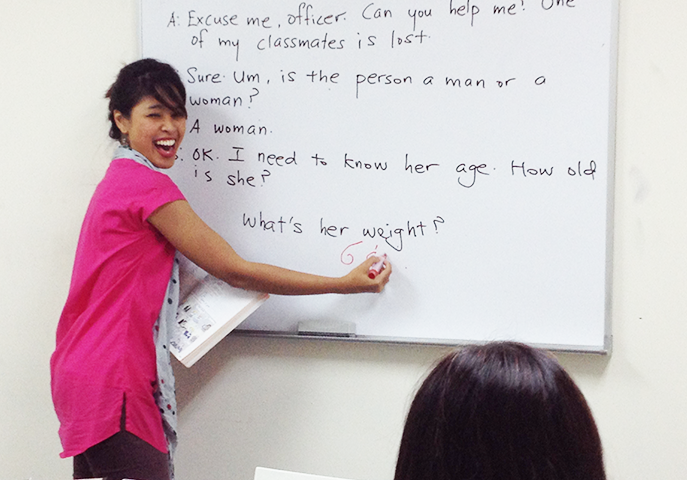 A: Excuse me, officer. Can you help me? One
of my classmates is lost.
Sure. Um, is the person a man or a
woman?
A woman.
OK. I need to know her age. How old
is she?
What's her weight?